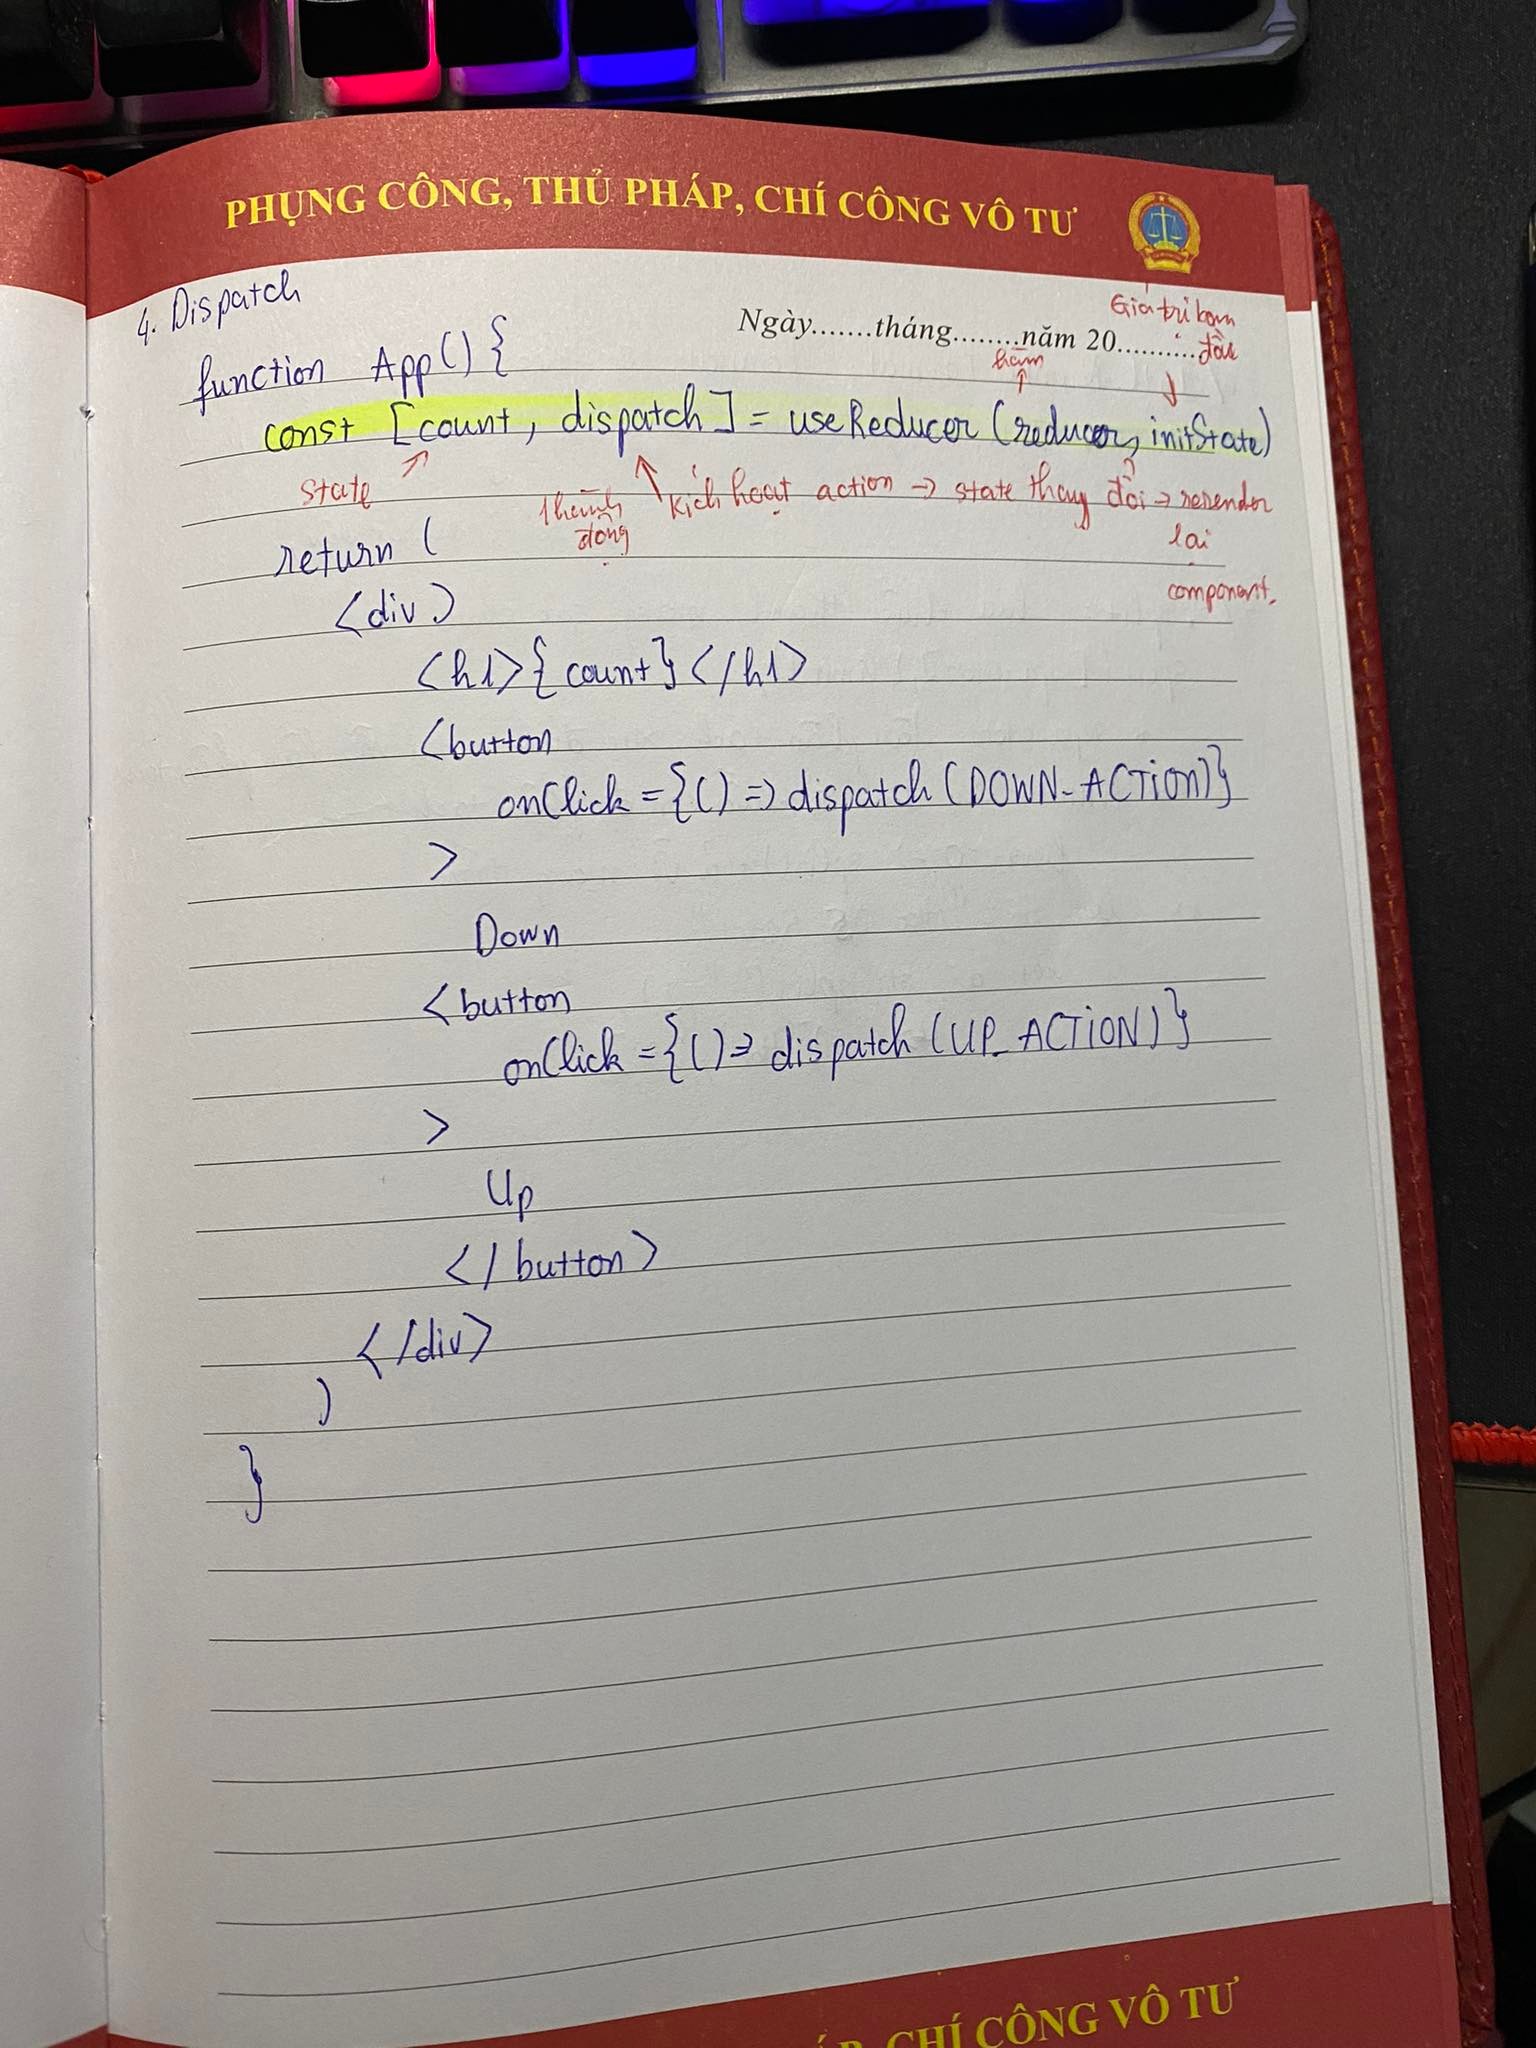 PHỤNG CÔNG, THỦ PHÁP, CHÍ CÔNG VÔ TƯ
4. Dispatch
Ngày.......tháng........năm 20..........
Giá trị ban
đầu
hàm
function App() {
const [count, dispatch] = useReducer (reducer, initState)
state
hành
động
kích hoạt action → state thay đổi → rerender
lại
component.
return (
<div>
<h1>{count}</h1>
<button
onClick = {() => dispatch (DOWN_ACTION)}
>
Down
<button
onClick = {() => dispatch (UP_ACTION)}
>
Up
</button>
</div>
)
}
CHÍ CÔNG VÔ TƯ